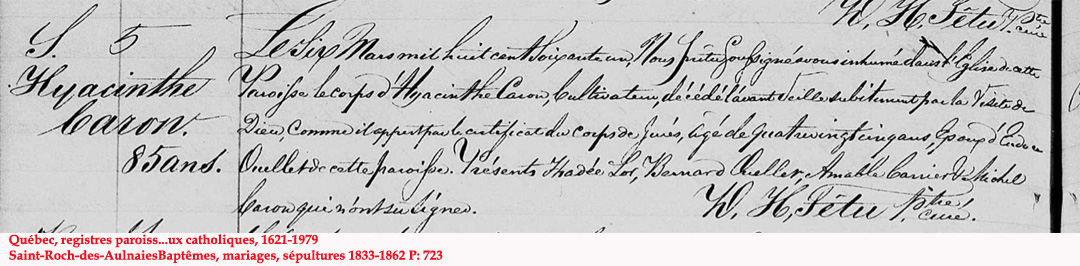 D, H, Têtu Ptre curé
S. 5 Le Six Mars mil huit cent soixante un, Nous prêtre Soussigné avons inhumé dans l'Eglise de cette
Hyacinthe Paroisse le corps d'Hyacinthe Caron, Cultivateur, décédé l'avant veille subitement par la Visite de
Caron. Dieu, comme il appert par le certificat du corps de Jurés, âgé de quatre vingt cinq ans, Epoux d'
85 ans. Ouellet de cette paroisse. Présents Thadée Lor, Bernard Ouellet, Amable Carrier & Michel
Caron qui n'ont su signer. D, H, Têtu Ptre curé.
Québec, registres paroiss...ux catholiques, 1621-1979
Saint-Roch-des-AulnaiesBaptêmes, mariages, sépultures 1833-1862 P: 723